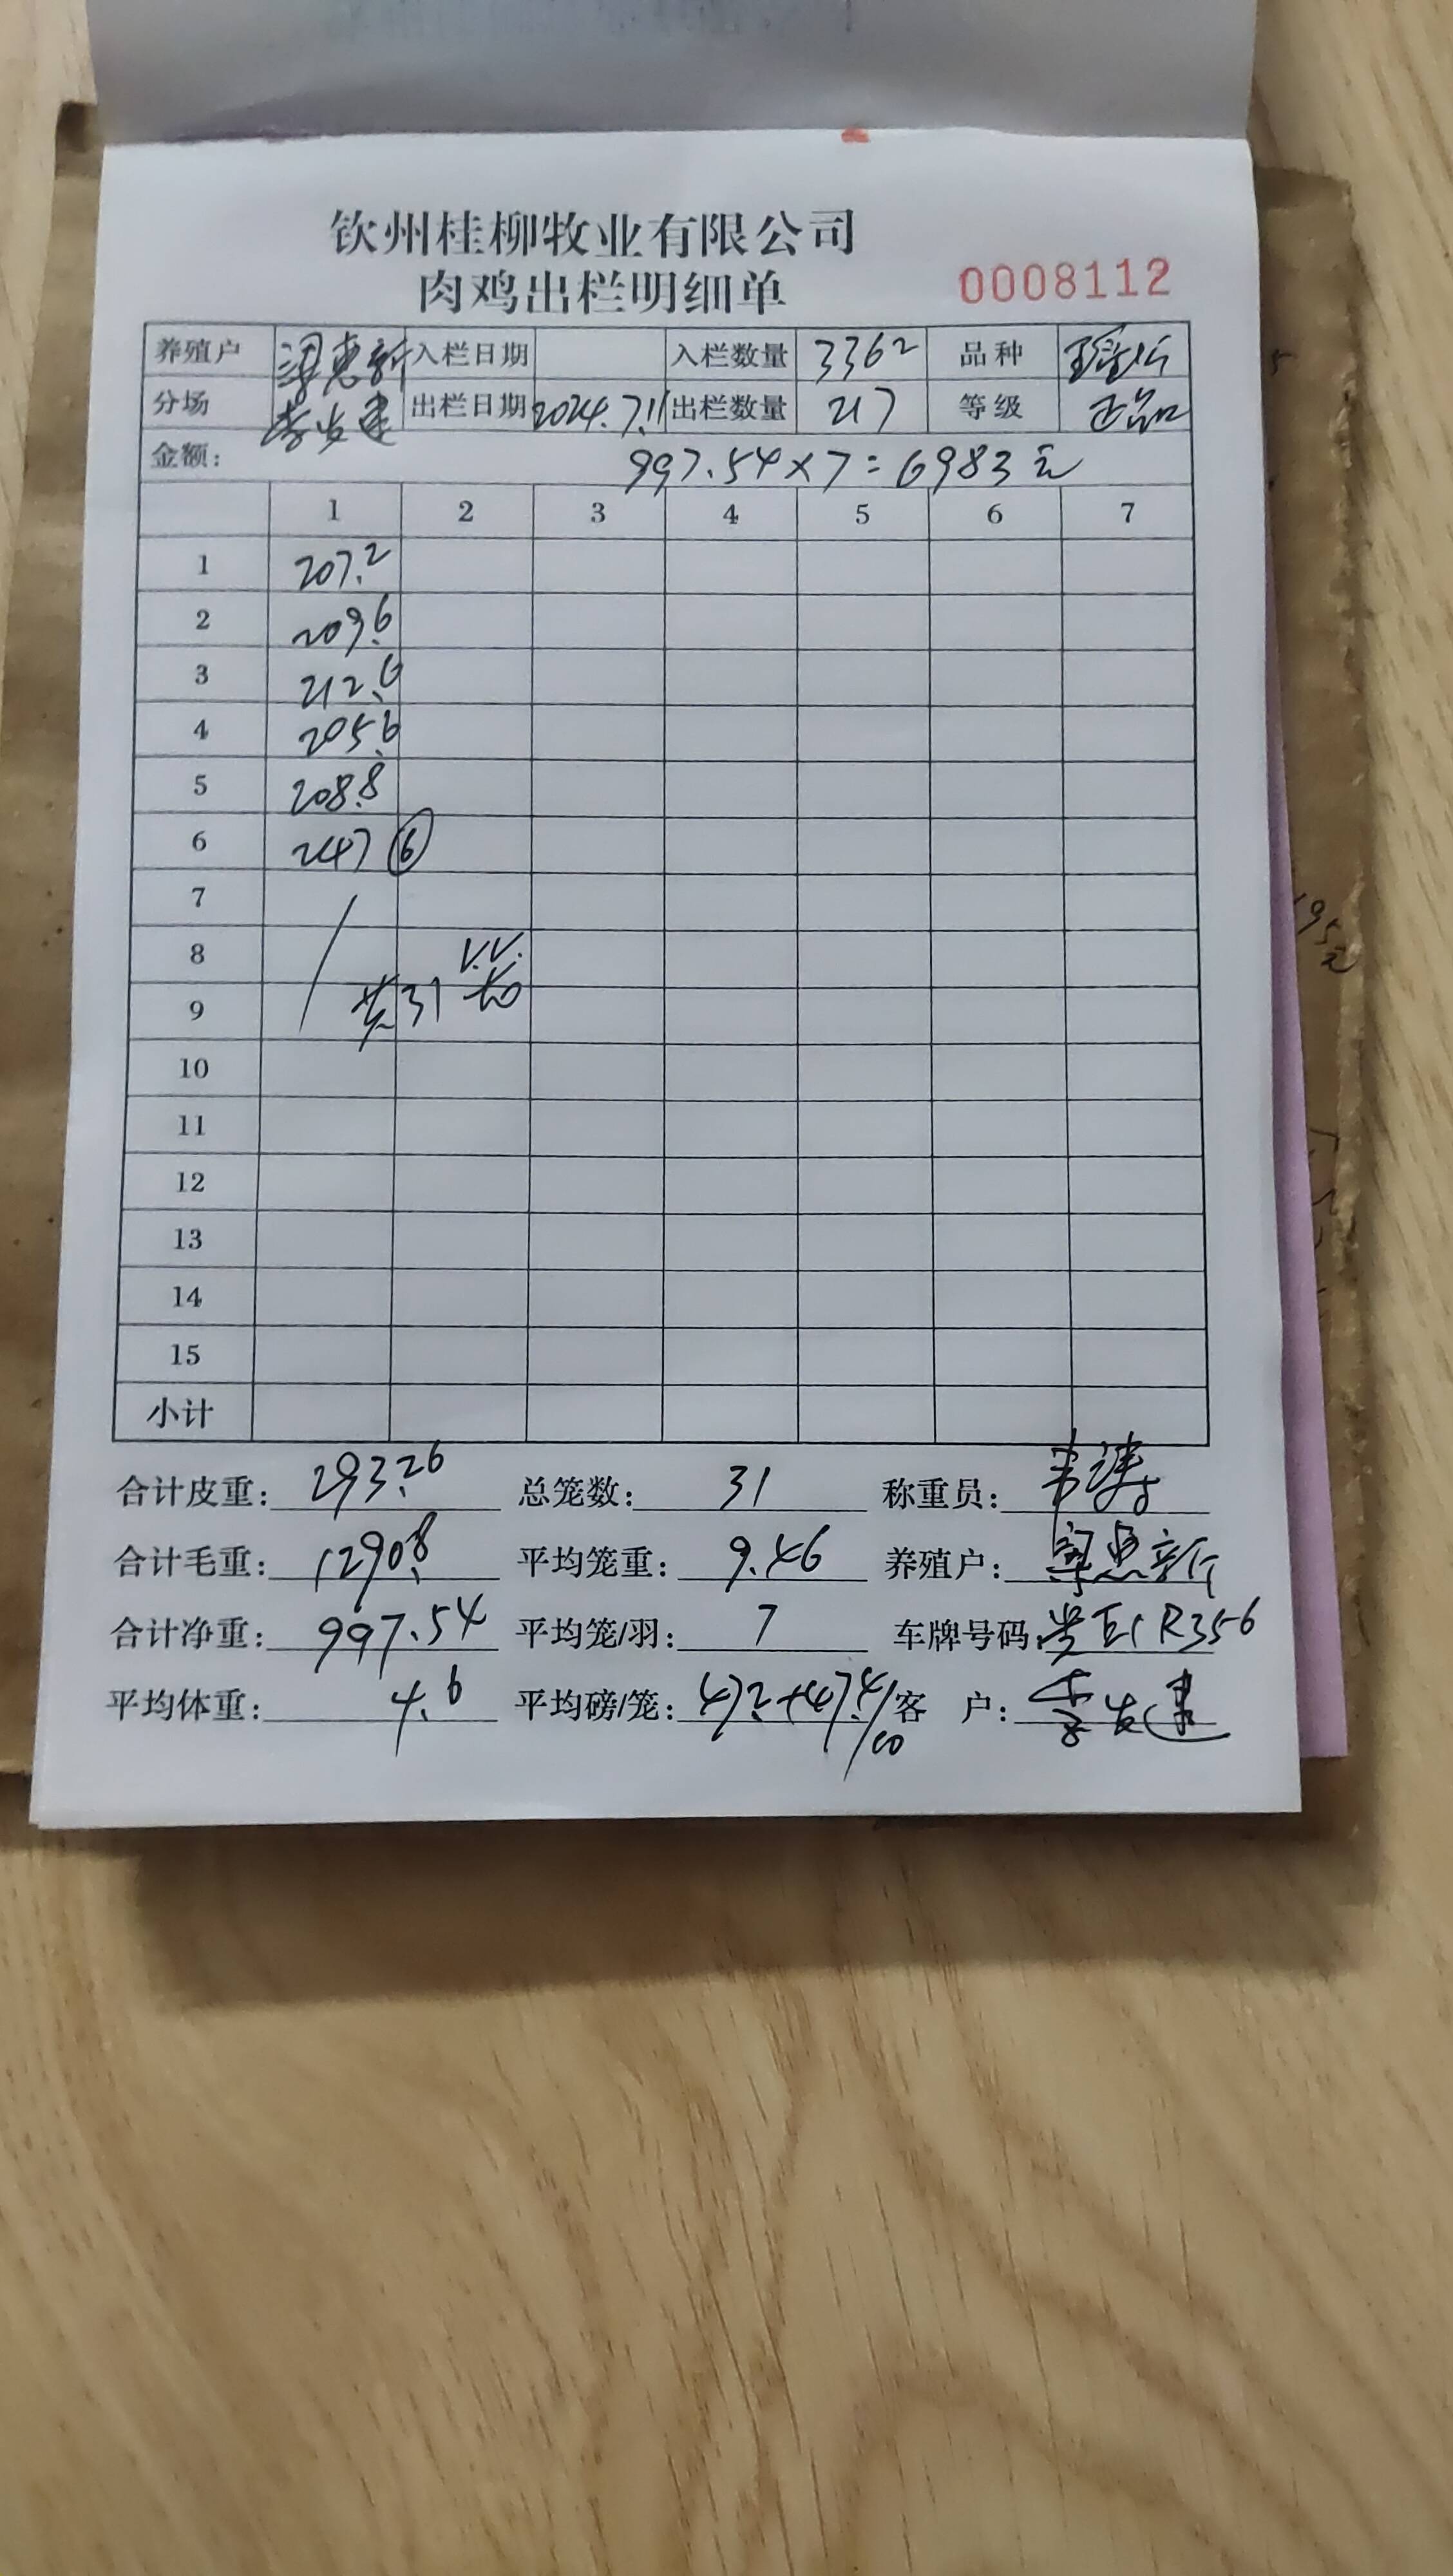 钦州桂柳牧业有限公司
肉鸡出栏明细单 0008112
养殖户 梁惠新 入栏日期 入栏数量 3362 品种
分场 李发建 出栏日期 2024.7.11 出栏数量 217 等级 正品
金额: 997.54×7=6983元
1 2 3 4 5 6 7
1 207.2
2 209.6
3 212.6
4 205.6
5 208.8
6 247 ⑥
7
8
9 共31
10
11
12
13
14
15
小计
合计皮重: 293.26 总笼数: 31 称重员:
合计毛重: 1290.8 平均笼重: 9.46 养殖户: 梁惠新
合计净重: 997.54 平均笼/羽: 7 车牌号码: R356
平均体重: 4.6 平均磅/笼: 47.2+47.4/10 客 户: 李发建
195元